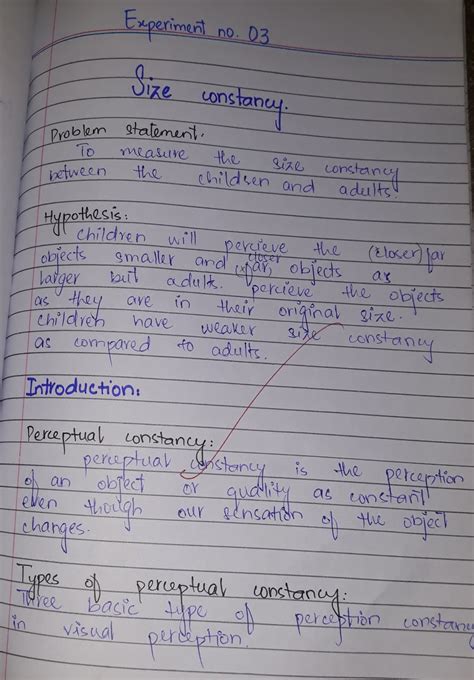 Experiment no. 03
Size constancy.
Problem statement.
To measure the size constancy
between the children and adults.
Hypothesis:
children will percieve the (closer) far
objects smaller and closer (far) objects as
larger but adults. percieve the objects
as they are in their original size.
children have weaker size constancy
as compared to adults.
Introduction:
Perceptual constancy:
perceptual constancy is the perception
of an object or quality as constant
even though our sensation of the object
changes.
Types of perceptual constancy:
Three basic type of perception constancy
in visual perception.